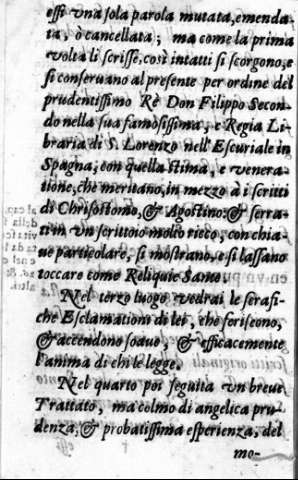 essi vna sola parola mutata, emenda-
ta, ò cancellata; ma come la prima
volta li scrisse, così intatti si scorgono, e
si conseruano al presente per ordine del
prudentissimo Rè Don Filippo Secon-
do nella sua famosissima, e Regia Li-
braria di S. Lorenzo nell'Escuriale in
Spagna, con quella stima, e venera-
tione, che meritano, in mezzo a i scritti
di Chrisostomo, & Agostino: & serra-
ti in vn scrittoio molto ricco, con chia-
ue particolare, si mostrano, e si lassano
toccare come Reliquie Sante.
Nel terzo luogo vedrai le serafi-
che Esclamationi di lei, che feriscono,
& accendono soaue, & efficacemente
l'anima di chi le legge.
Nel quarto poi seguita vn breue
Trattato, ma colmo di angelica pru-
denza, & probatissima esperienza, del
mo-
al cap.
della
vita